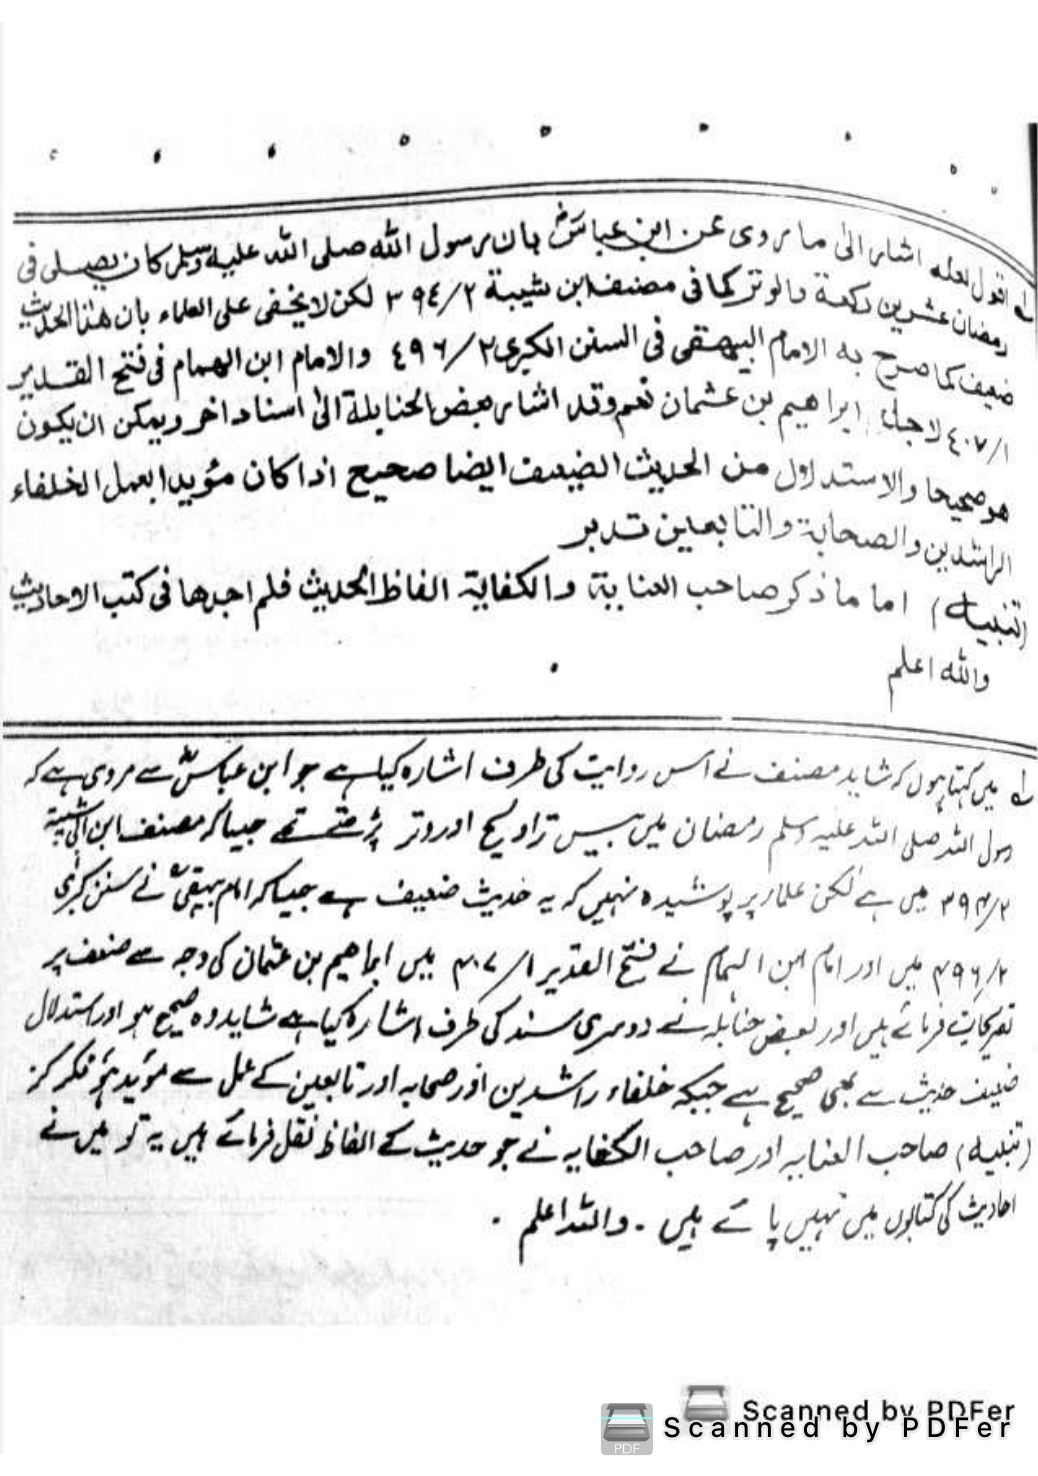 لے اقول لعله اشار الى ما روى عن ابن عباسؓ بان رسول الله صلى الله عليه وسلم كان يصلى فى
رمضان عشرين ركعة والوتر كما فى مصنف ابن شيبة ٣٩٤/٢ لكن لا يخفى على العلماء بان هذا الحديث
ضعيف كما صرح به الامام البيهقى فى السنن الكبرى ٤٩٦/٢ والامام ابن الهمام فى فتح القدير
٤٠٧/١ لاجل ابراهيم بن عثمان نعم وقد اشار بعض الحنابلة الى اسناد اخر ويمكن ان يكون
هو صحيحا والاستدلال من الحديث الضعيف ايضا صحيح اذا كان مؤيدا بعمل الخلفاء
الراشدين والصحابة والتابعين تدبر
(تنبيه) اما ما ذكر صاحب العناية والكفاية الفاظ الحديث فلم اجدها فى كتب الاحاديث
والله اعلم
لے میں کہتا ہوں کہ شاید مصنف نے اس روایت کی طرف اشارہ کیا ہے جو ابن عباسؓ سے مروی ہے کہ
رسول اللہ صلی اللہ علیہ وسلم رمضان میں بیس تراویح اور وتر پڑھتے تھے جیسا کہ مصنف ابن ابی شیبۃ
۳۹۴/۲ میں ہے لکن علماء پر پوشیدہ نہیں کہ یہ حدیث ضعیف ہے جیسا کہ امام بیہقیؒ نے سنن کبری
۴۹۶/۲ میں اور امام ابن الہمام نے فتح القدیر ۴۰۷/۱ میں ابراھیم بن عثمان کی وجہ سے ضعف پر
تصریحات فرمائے ہیں اور بعض حنابلہ نے دوسری سند کی طرف اشارہ کیا ہے شاید وہ صحیح ہو اور استدلال
ضعیف حدیث سے بھی صحیح ہے جبکہ خلفاء راشدین اور صحابہ اور تابعین کے عمل سے مؤید ہو فکر کر
(تنبیہ) صاحب العنایہ اور صاحب الکفایہ نے جو حدیث کے الفاظ نقل فرمائے ہیں یہ تو میں نے
احادیث کی کتابوں میں نہیں پائے ہیں ۔ واللہ اعلم ۔
Scanned by PDFer
PDF Scanned by PDFer